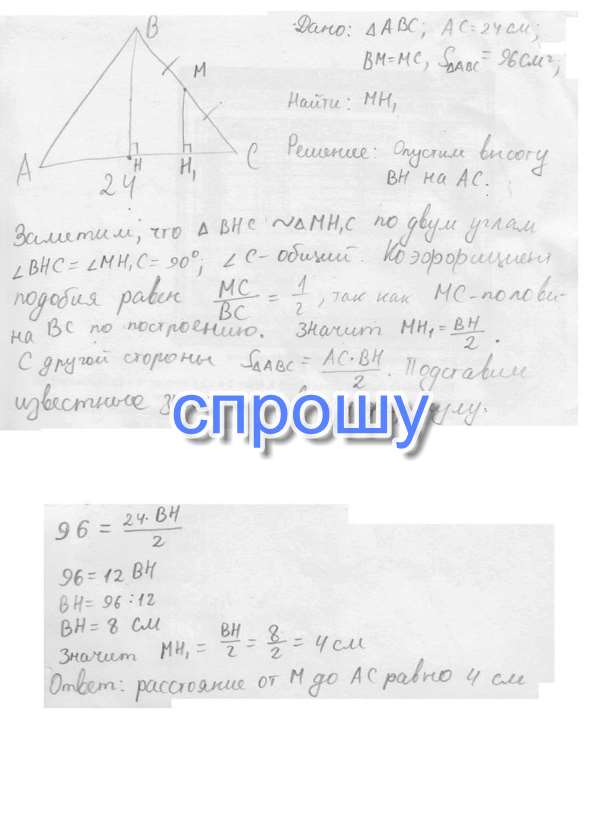 Дано: △ABC; AC=24см;
BM=MC, S△ABC=96см²;
B
M
Найти: MH₁
A
H
H₁
C
24
Решение: Опустим высоту
BH на AC.
Заметим, что △BHC ~ △MH₁C по двум углам
∠BHC=∠MH₁C=90°; ∠C-общий. Коэффициент
подобия равен MC/BC = 1/2, так как MC-полови-
на BC по построению. Значит MH₁=BH/2.
С другой стороны S△ABC = AC·BH/2. Подставим
известные
спрошу
96 = 24·BH/2
96=12 BH
BH=96:12
BH=8 см
Значит MH₁ = BH/2 = 8/2 = 4 см
Ответ: расстояние от M до AC равно 4 см